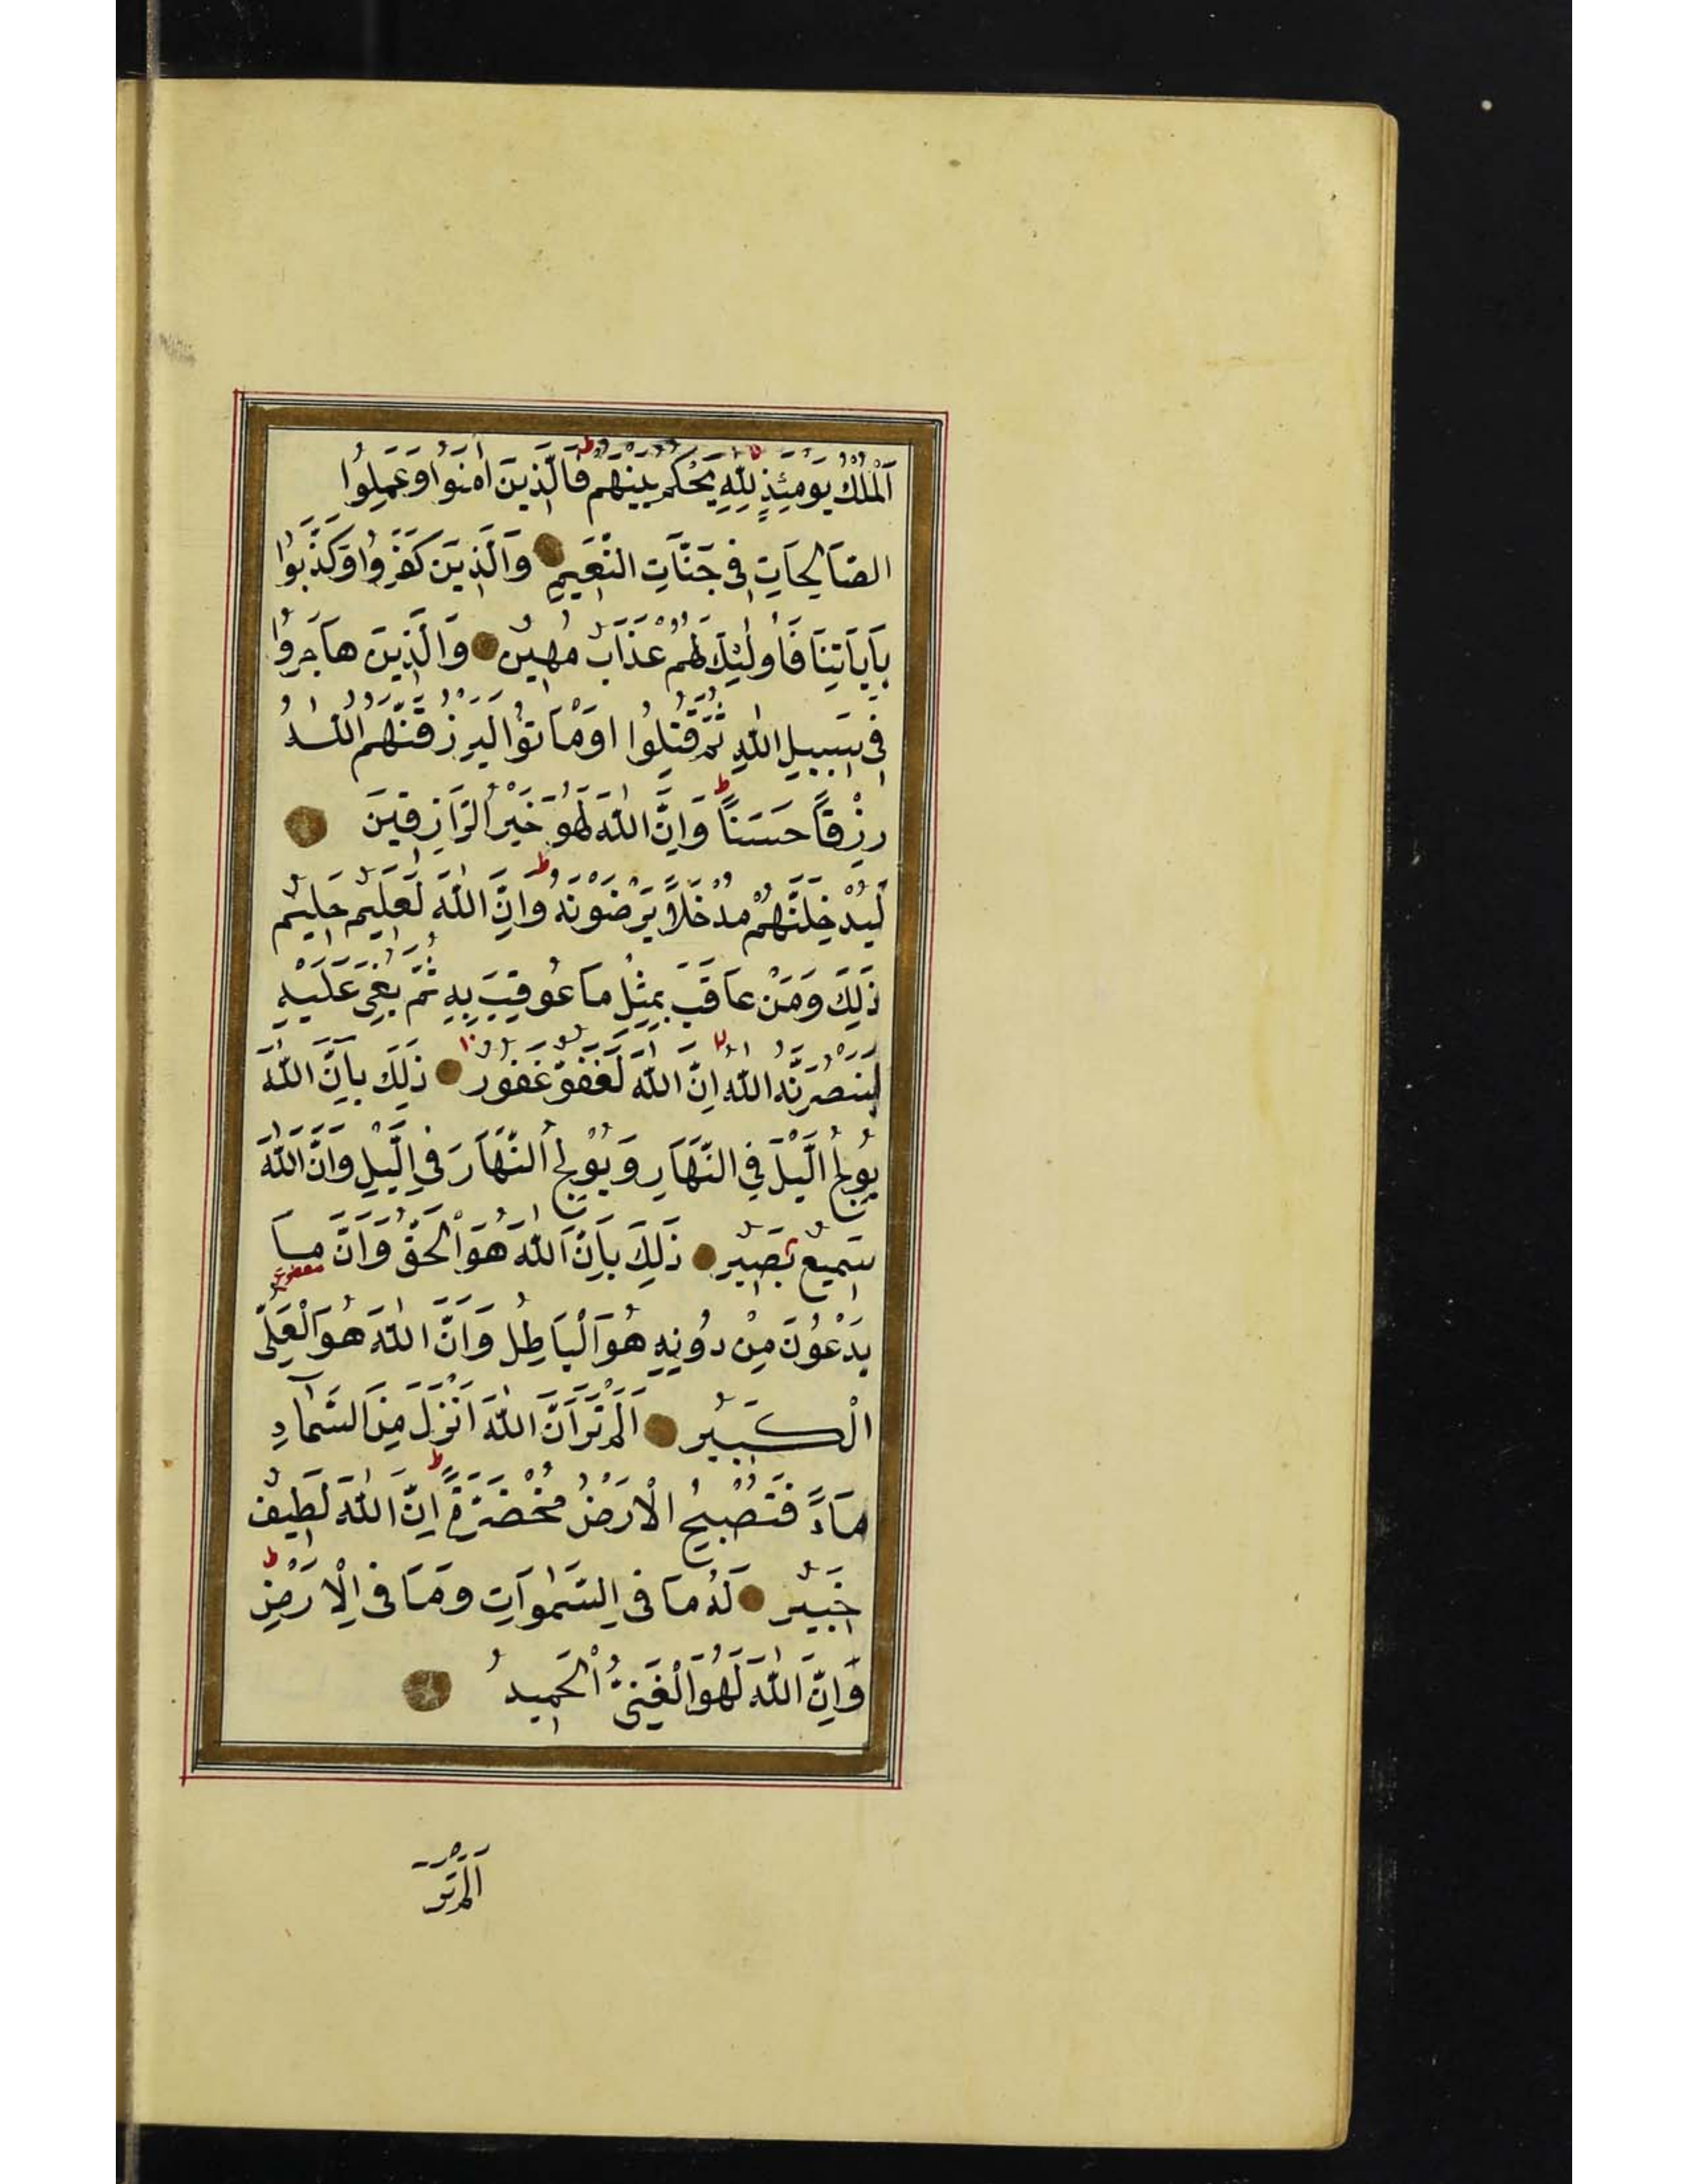 اَلْمُلْكُ يَوْمَئِذٍ لِلّٰهِ يَحْكُمُ بَيْنَهُمْ فَالَّذِينَ اٰمَنُوا وَعَمِلُوا
الصَّالِحَاتِ فِى جَنَّاتِ النَّعِيمِ وَالَّذِينَ كَفَرُوا وَكَذَّبُوا
بِاٰيَاتِنَا فَاُولٰئِكَ لَهُمْ عَذَابٌ مُهِينٌ وَالَّذِينَ هَاجَرُوا
فِى سَبِيلِ اللّٰهِ ثُمَّ قُتِلُوا اَوْ مَاتُوا لَيَرْزُقَنَّهُمُ اللّٰهُ
رِزْقًا حَسَنًا وَاِنَّ اللّٰهَ لَهُوَ خَيْرُ الرَّازِقِينَ
لَيُدْخِلَنَّهُمْ مُدْخَلًا يَرْضَوْنَهُ وَاِنَّ اللّٰهَ لَعَلِيمٌ حَلِيمٌ
ذٰلِكَ وَمَنْ عَاقَبَ بِمِثْلِ مَا عُوقِبَ بِهِ ثُمَّ بُغِىَ عَلَيْهِ
لَيَنْصُرَنَّهُ اللّٰهُ اِنَّ اللّٰهَ لَعَفُوٌّ غَفُورٌ ذٰلِكَ بِاَنَّ اللّٰهَ
يُولِجُ الَّيْلَ فِي النَّهَارِ وَيُولِجُ النَّهَارَ فِي الَّيْلِ وَاَنَّ اللّٰهَ
سَمِيعٌ بَصِيرٌ ذٰلِكَ بِاَنَّ اللّٰهَ هُوَ الْحَقُّ وَاَنَّ مَا
يَدْعُونَ مِنْ دُونِهِ هُوَ الْبَاطِلُ وَاَنَّ اللّٰهَ هُوَ الْعَلِىُّ
الْكَبِيرُ اَلَمْ تَرَ اَنَّ اللّٰهَ اَنْزَلَ مِنَ السَّمَاءِ
مَاءً فَتُصْبِحُ الْاَرْضُ مُخْضَرَّةً اِنَّ اللّٰهَ لَطِيفٌ
خَبِيرٌ لَهُ مَا فِى السَّمٰوَاتِ وَمَا فِى الْاَرْضِ
وَاِنَّ اللّٰهَ لَهُوَ الْغَنِىُّ الْحَمِيدُ
اَلَمْ تَرَ